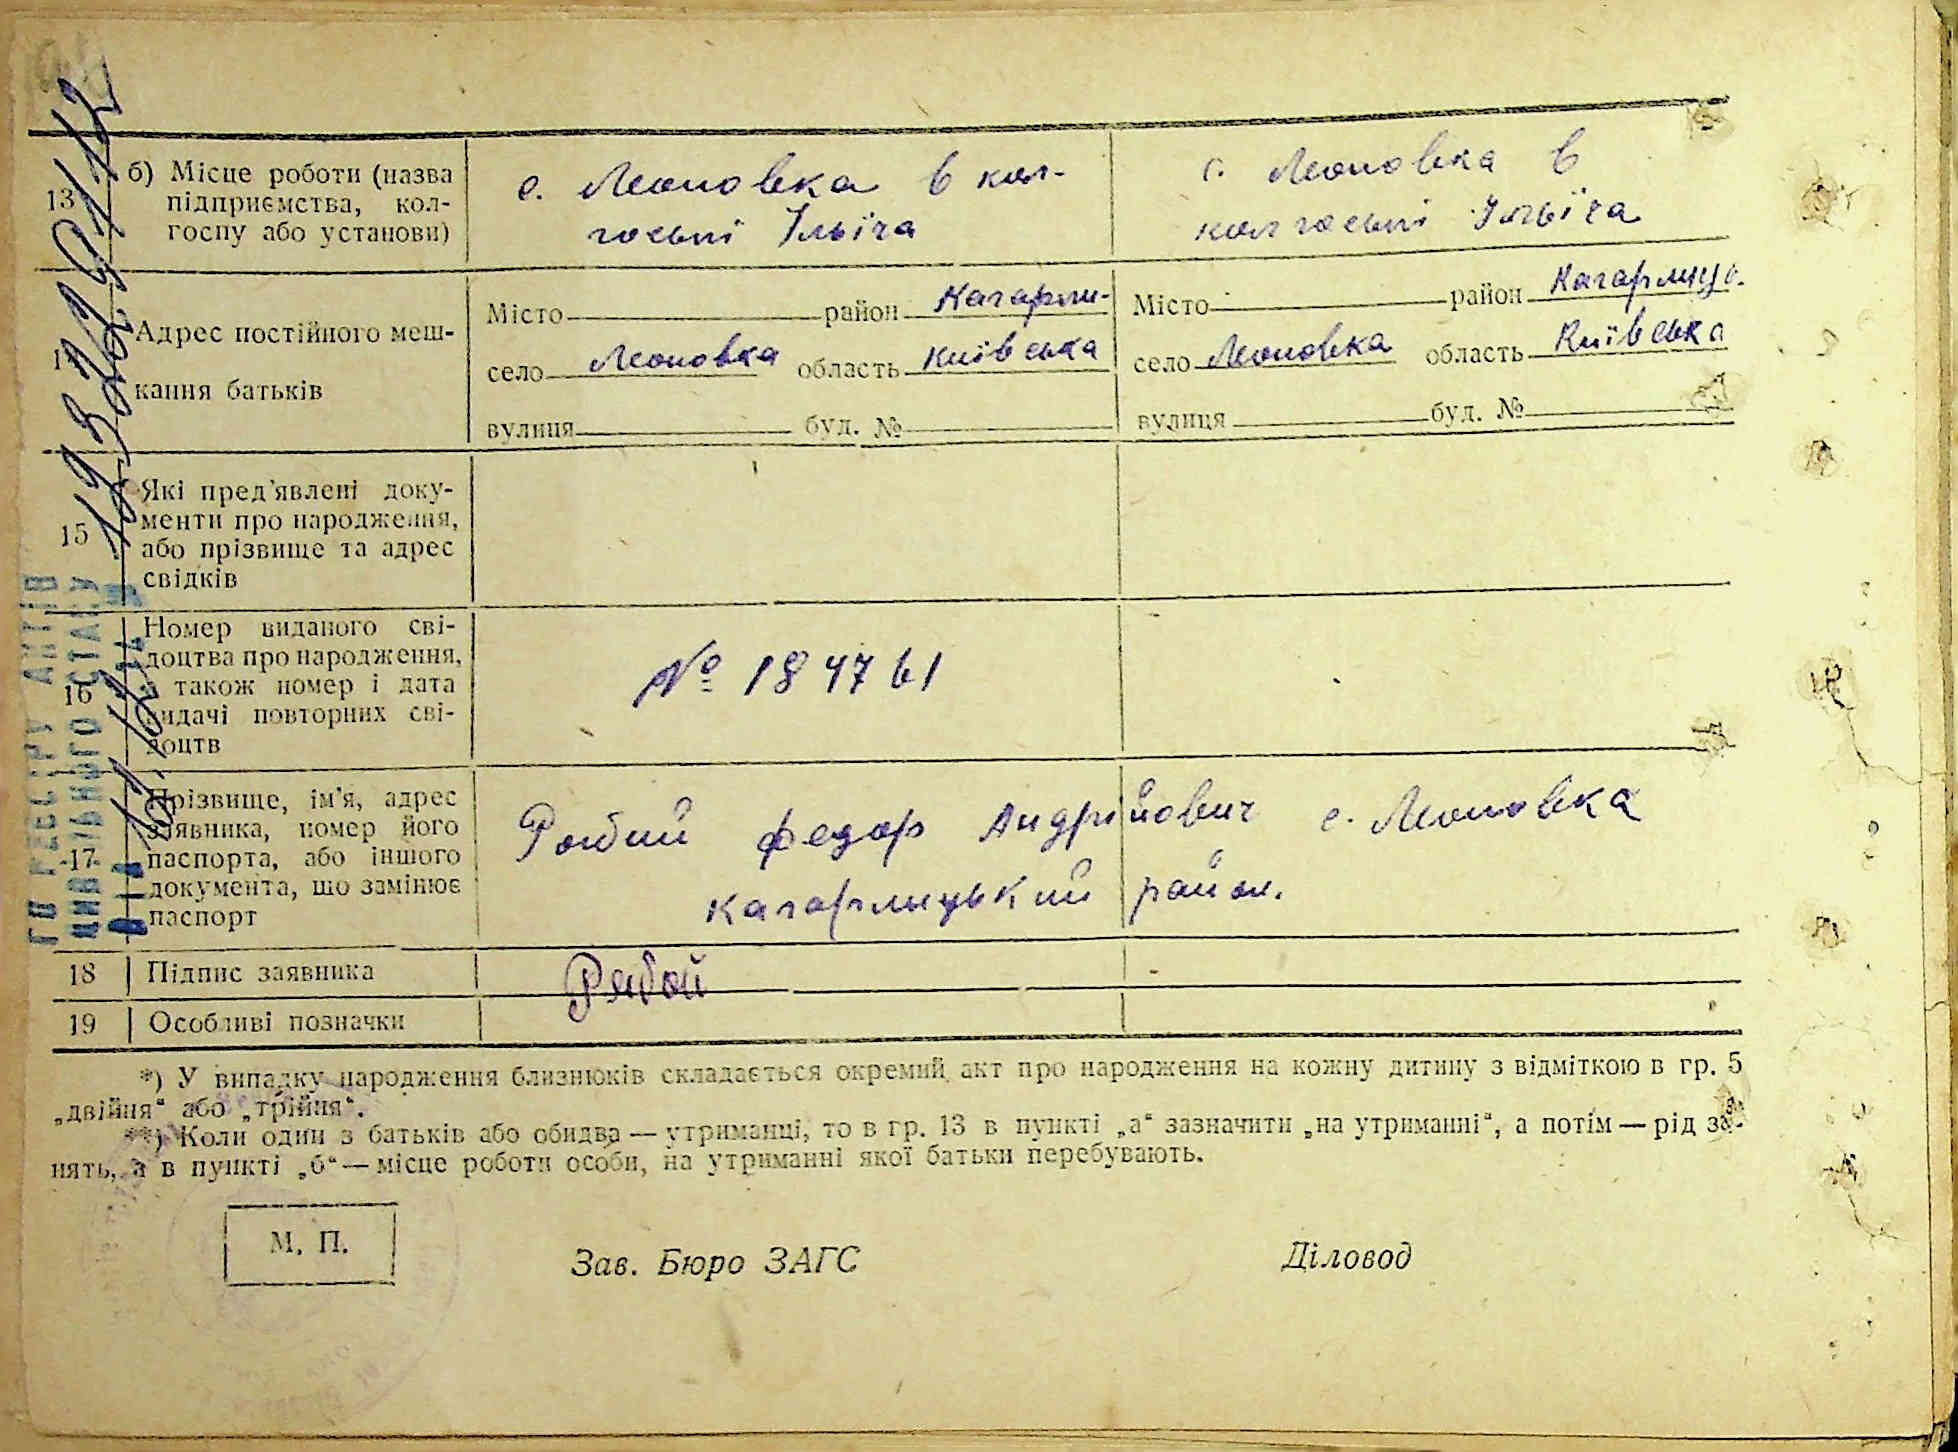 13
б) Місце роботи (назва
підприємства, кол-
госпу або установи)
с. Леоновка в кол-
госьпі Ільїча
с. Леоновка в
колгосьпі Ільїча
Адрес постійного меш-
кання батьків
Місто район Кагарли-
село Леоновка область Київська
вулиця буд. №
Місто район Кагарлицо.
село Леоновка область Київська
вулиця буд. №
15
Які пред'явлені доку-
менти про народження,
або прізвище та адрес
свідків
16
Номер виданого сві-
доцтва про народження,
а також номер і дата
видачі повторних сві-
доцтв
№ 184761
17
Прізвище, ім'я, адрес
заявника, номер його
паспорта, або іншого
документа, що замінює
паспорт
Рябий Федор Андрійович с. Леоновка
Кагарлицький район.
18 Підпис заявника
Рябой
19 Особливі позначки
*) У випадку народження близнюків складається окремий акт про народження на кожну дитину з відміткою в гр. 5
„двійня“ або „трійня“.
**) Коли один з батьків або обидва — утриманці, то в гр. 13 в пункті „а“ зазначити „на утриманні“, а потім — рід за-
нять, а в пункті „б“ — місце роботи особи, на утриманні якої батьки перебувають.
М. П.
Зав. Бюро ЗАГС
Діловод